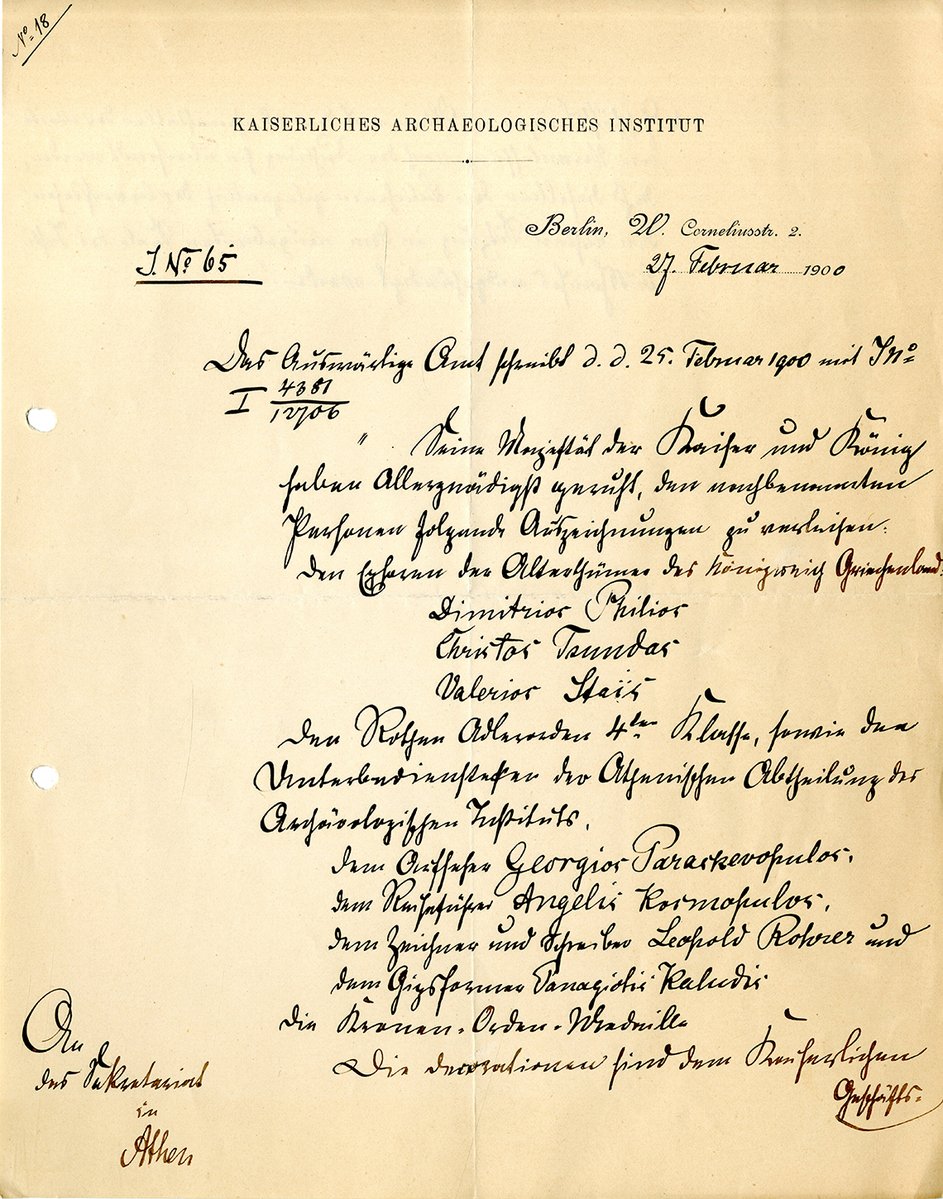 No 18
KAISERLICHES ARCHAEOLOGISCHES INSTITUT
Berlin, W. Corneliusstr. 2.
27. Februar 1900
J. No 65
Das Auswärtige Amt schreibt d. d. 25. Februar 1900 mit J No
I 4381
12706
" Seine Majestät der Kaiser und König
haben Allergnädigst geruht, den nachbenannten
Personen folgende Auszeichnungen zu verleihen:
den Ephoren der Alterthümer des Königreich Griechenland:
Dimitrios Philios
Christos Tsundas
Valerios Staïs
den Rothen Adlerorden 4ter Klasse, sowie den
Unterbediensteten der Athenischen Abtheilung des
Archäologischen Instituts,
dem Aufseher Georgios Paraskevopulos,
dem Angelis Kosmopulos,
dem Zeichner und Schreiber Leopold Rohrer und
dem Gipsformer Panagiotis Kaludis
die Kronen-Orden-Medaille
Die Decorationen sind dem Kaiserlichen
Geschäfts-
An
das Sekretariat
in
Athen